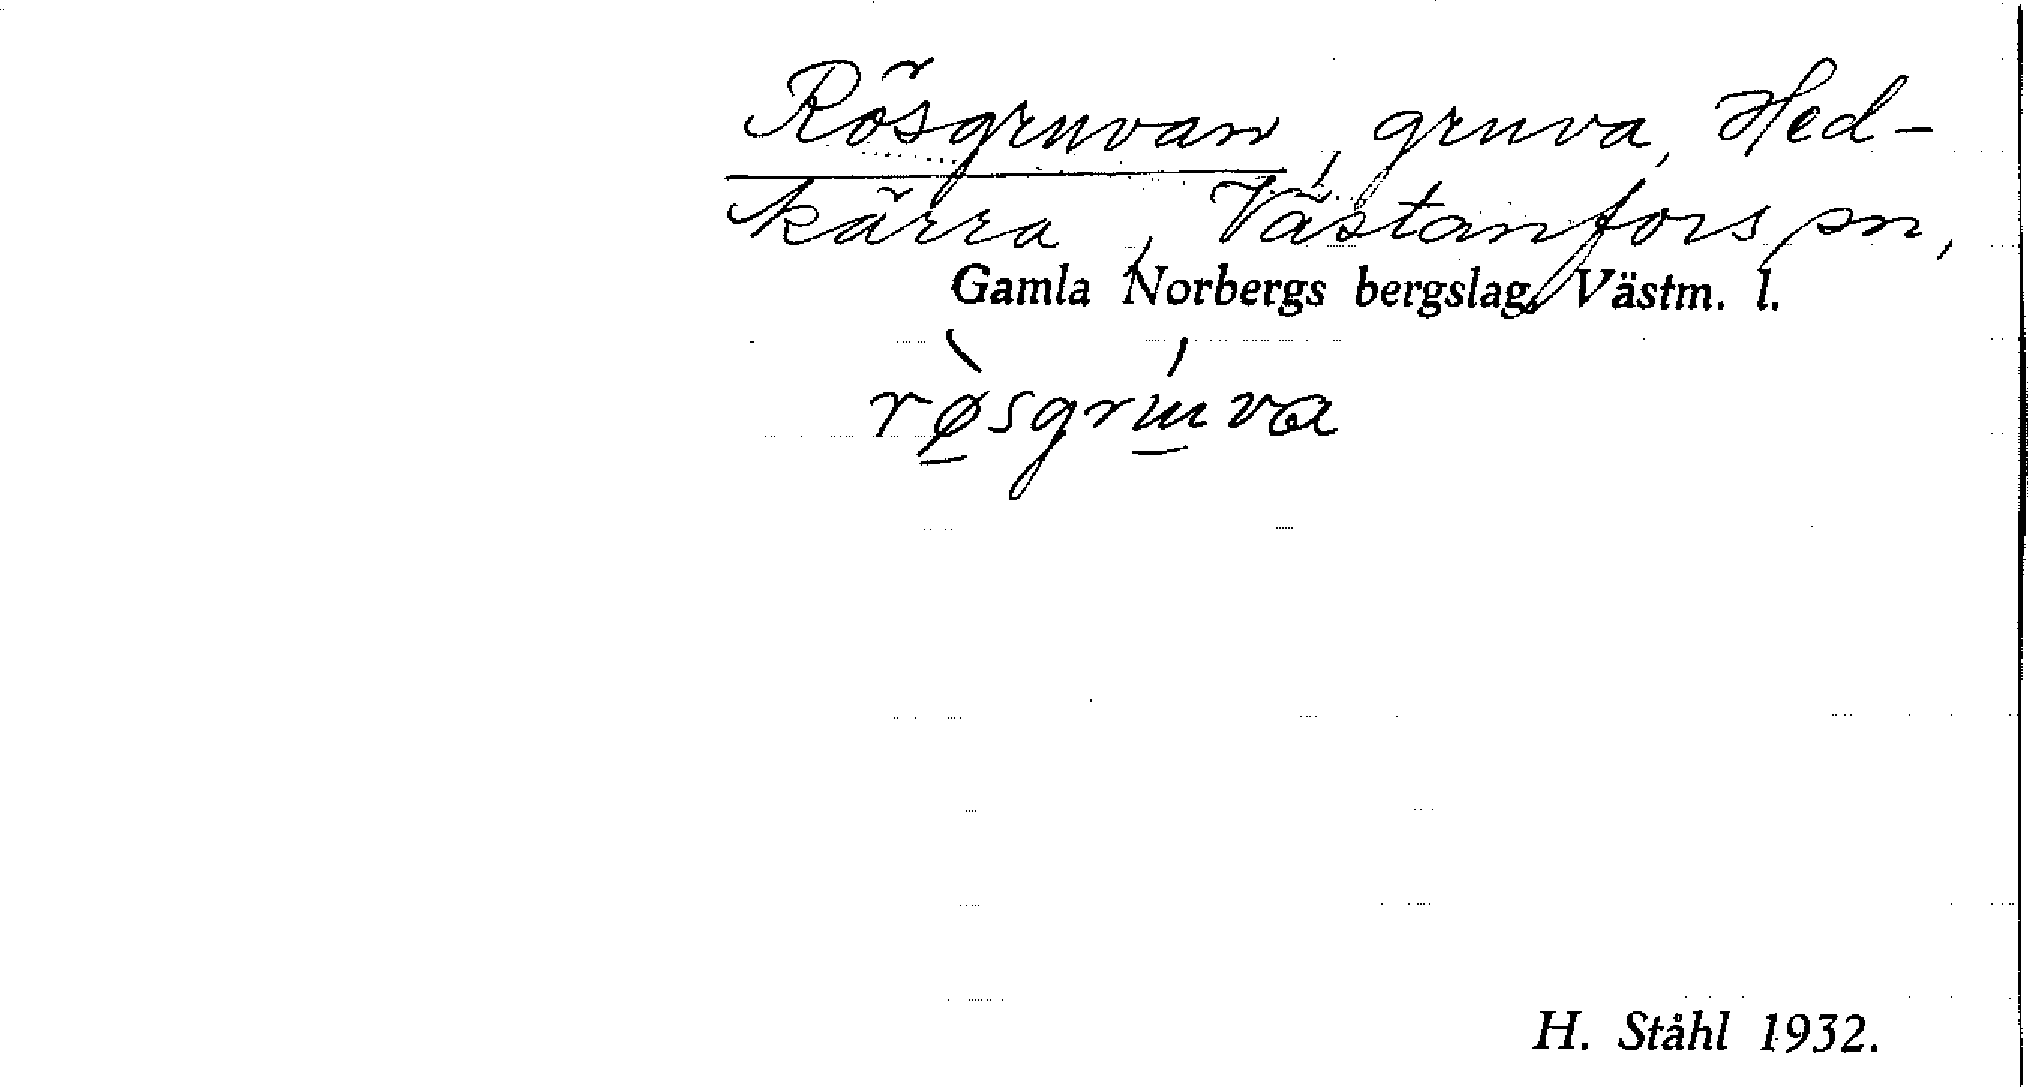 Rösgruvan, gruva, Hed-
kärra, Västanfors sn,
Gamla Norbergs bergslag, Västm. l.
rø̱̀sgrṳ́va
H. Ståhl 1932.